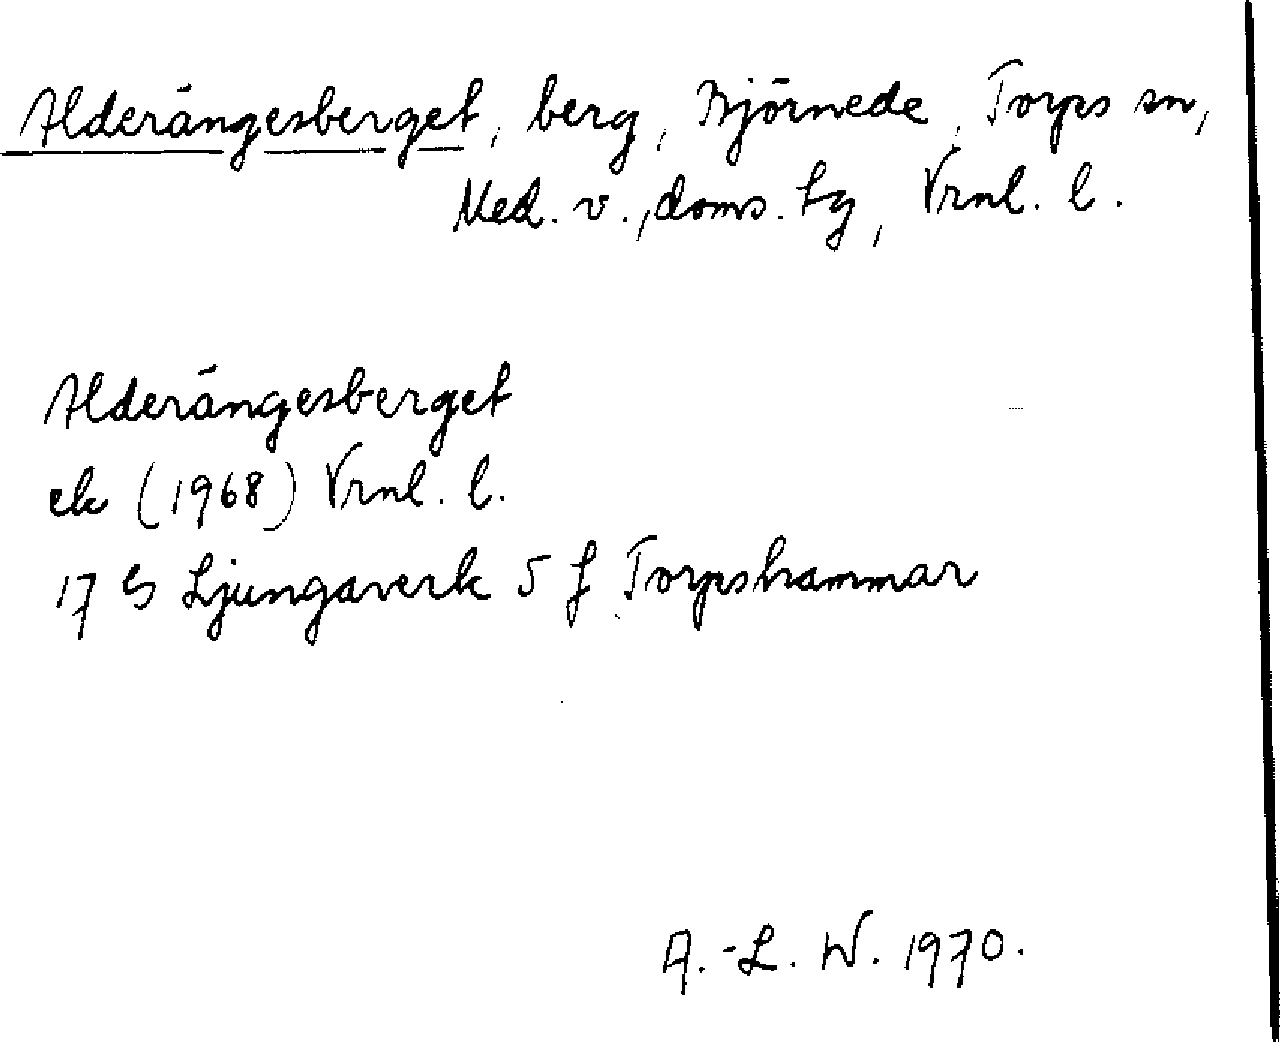 Alderängesberget, berg, Björnede, Torps sn,
Med. v., doms. tg, Vrnl. l.
Alderängesberget
ek (1968) Vrnl. l.
17 G Ljungaverk 5 f Torpshammar
A.-L. W. 1970.